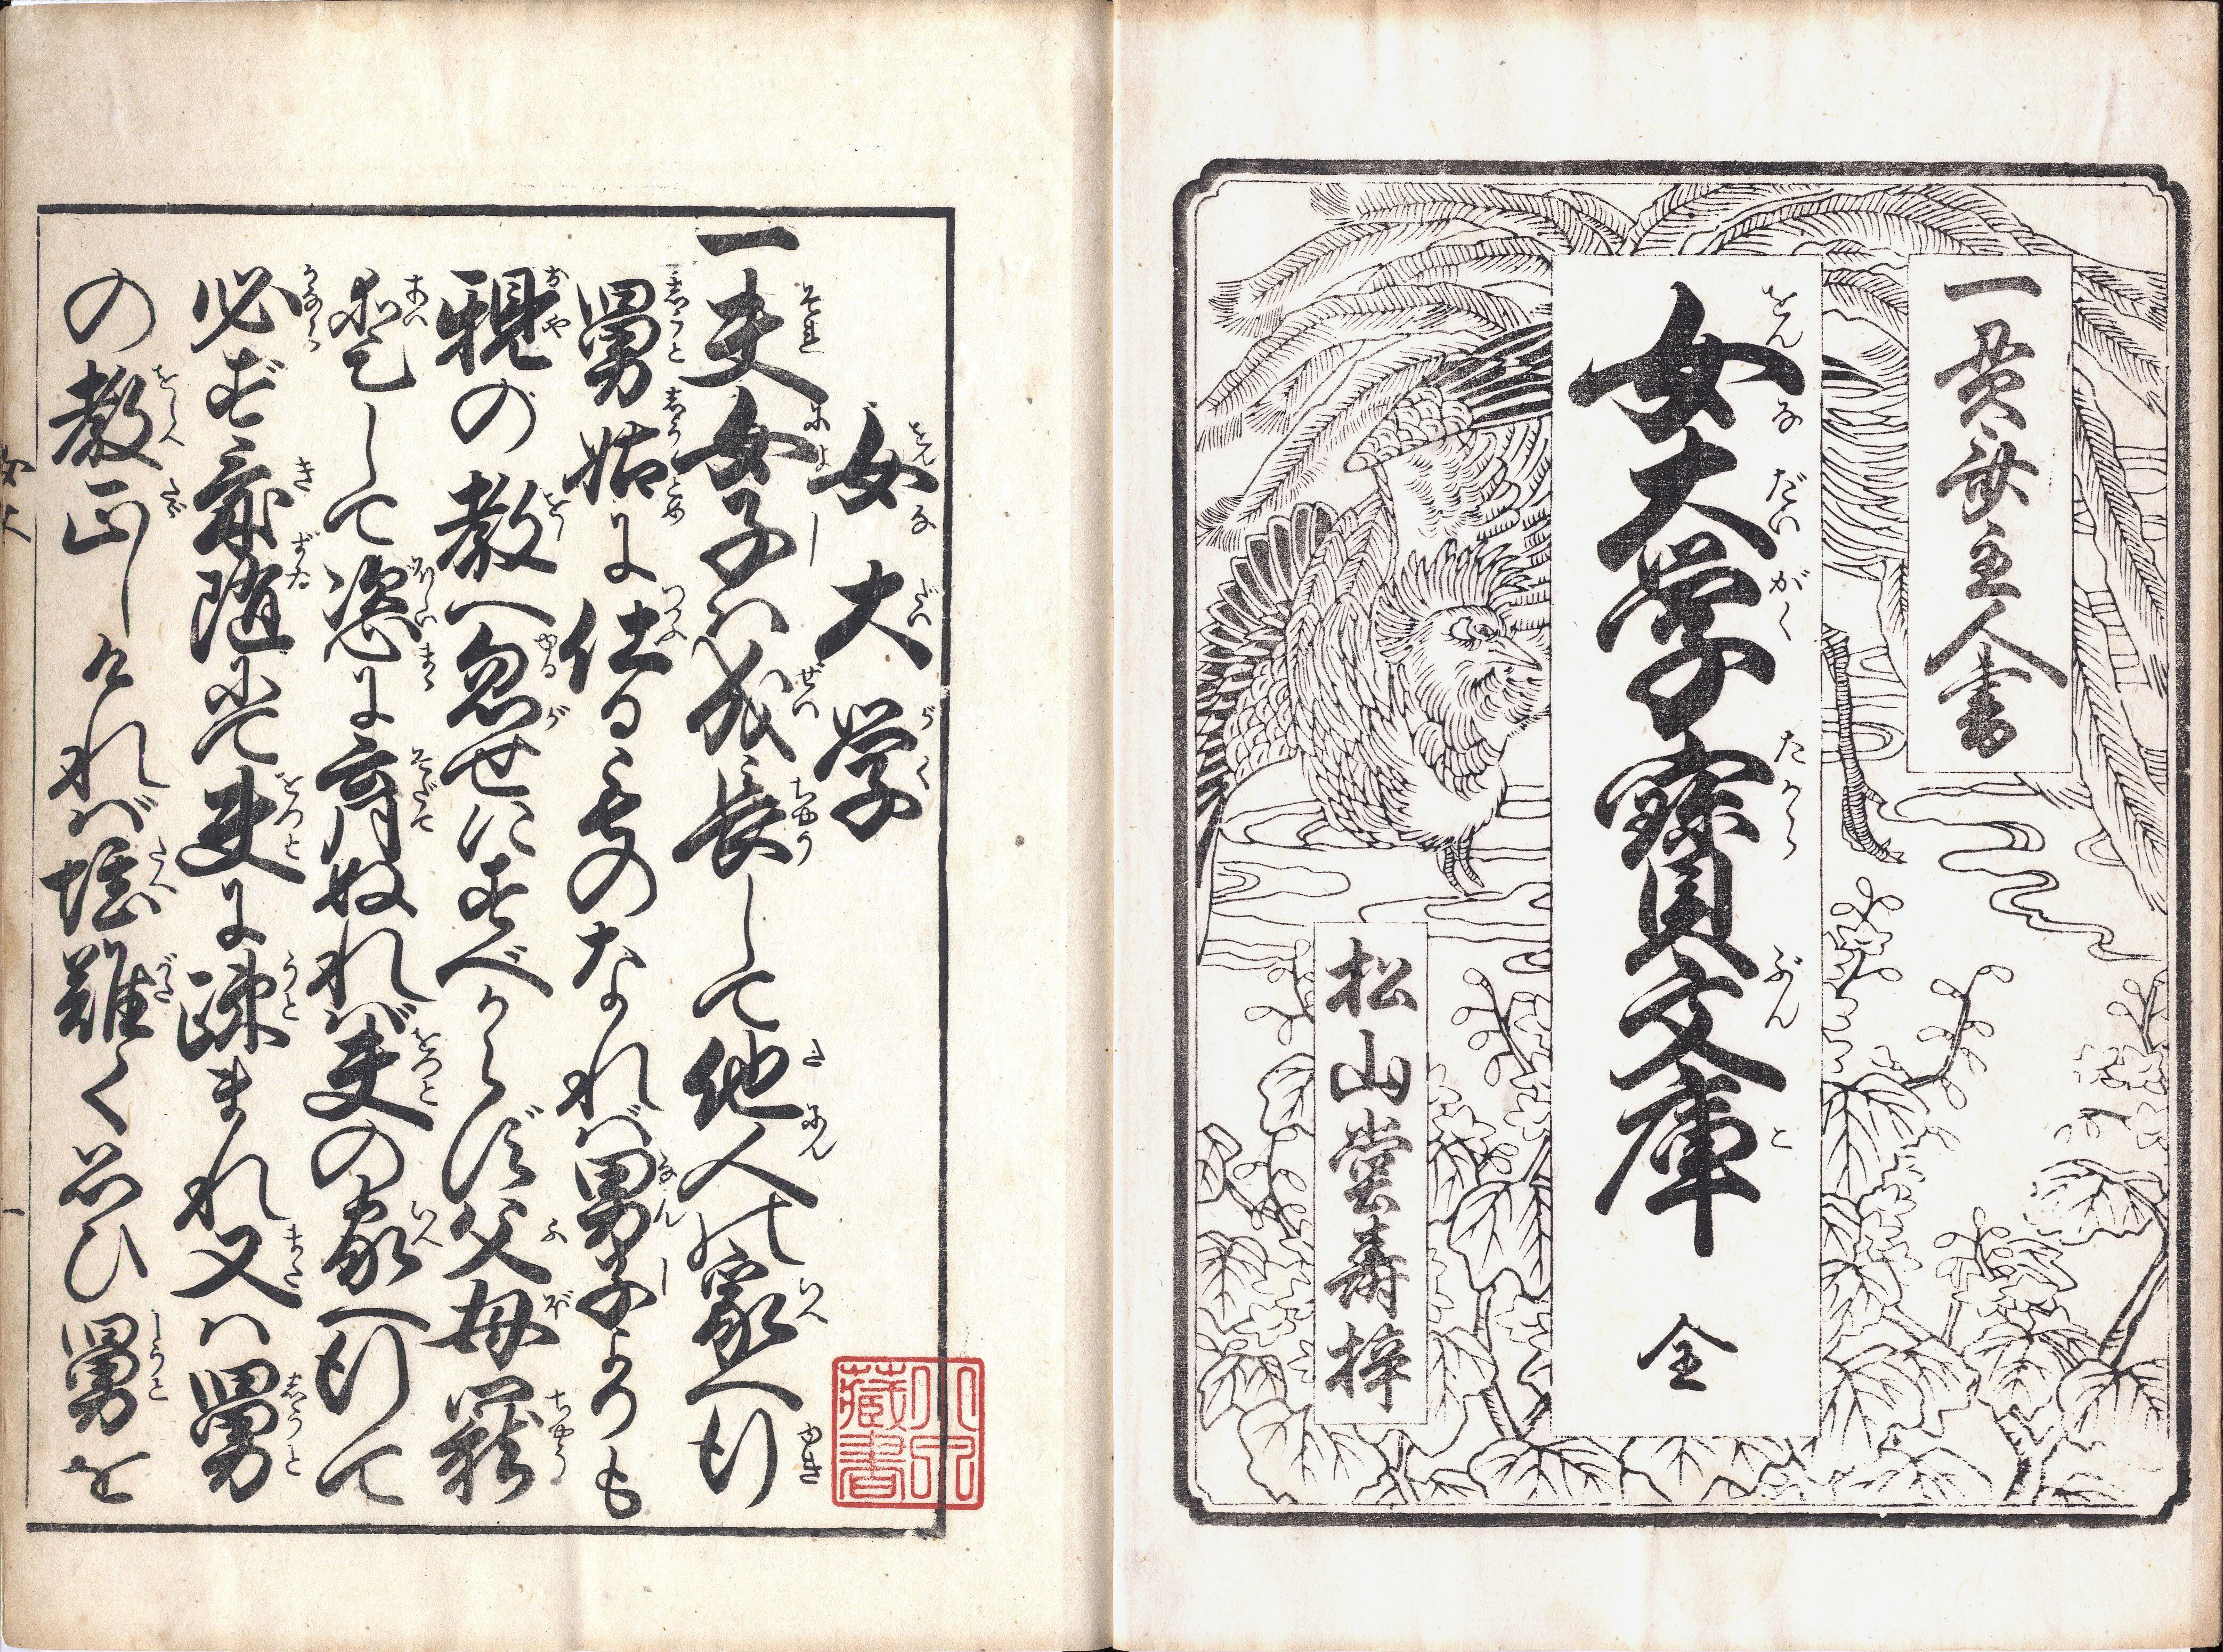 一貫齋主人書
女大学寶文庫 全
をんな だいがく たから ぶんこ
松山堂壽梓
女大学
一夫女子ハ成長して他人の家へ行
舅姑に仕るものなれバ男子よりも
親の教へ忽せにすべからず父母寵
愛して恣に育ぬれバ夫の家へ行て
必ず気随にて夫に疎まれ又ハ舅
の教正しけれバ堪難く思ひ舅を
藏書